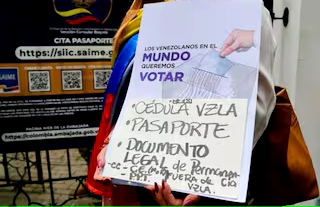 Sección Consular Bogotá
CITA PASAPORTE
https://siic.saime.
SAIME
PÁGINA WEB DE LA EMBAJADA
https://colombia.embajada.gob.
LOS VENEZOLANOS EN EL
MUNDO
QUEREMOS
VOTAR
• CÉDULA VZLA
• PASAPORTE
• DOCUMENTO
LEGAL de Permanen
FUERA DE
VZLA.